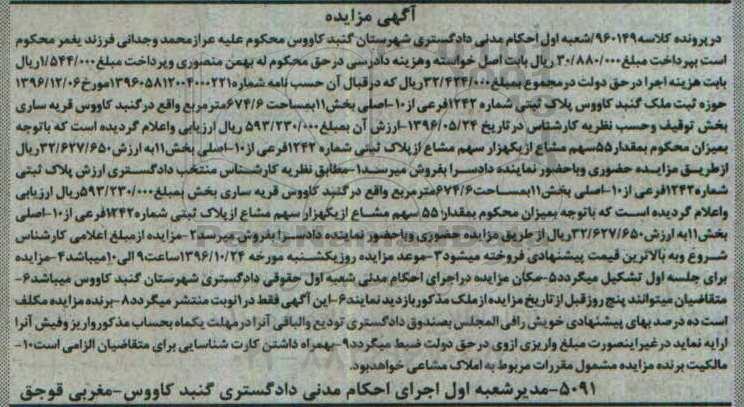 آگهی مزایده
در پرونده کلاسه ۹۶۰۱۴۹/شعبه اول احکام مدنی دادگستری شهرستان گنبد کاووس محکوم علیه عرازمحمد وجدانی فرزند یغمر محکوم
است بپرداخت مبلغ ۳۰/۸۸۰/۰۰۰ ریال بابت اصل خواسته وهزینه دادرسی در حق محکوم له بهمن منصوری وپرداخت مبلغ ۱/۵۴۴/۰۰۰ریال
بابت هزینه اجرا در حق دولت درمجموع بمبلغ ۳۲/۴۲۴/۰۰۰ریال که در قبال آن حسب نامه شماره ۱۳۹۶۰۵۸۱۲۰۰۴۰۰۰۲۲۱مورخ ۱۳۹۶/۱۲/۰۶
حوزه ثبت ملک گنبد کاووس پلاک ثبتی شماره ۱۲۴۲فرعی از۱۰-اصلی بخش۱۱بمساحت ۶۷۴/۶مترمربع واقع درگنبد کاووس قریه ساری
بخش توقیف وحسب نظریه کارشناس در تاریخ ۱۳۹۶/۰۵/۲۴-ارزش آن بمبلغ ۵۹۳/۲۳۰/۰۰۰ ریال ارزیابی واعلام گردیده است که باتوجه
بمیزان محکوم بمقدار۵۵سهم مشاع ازیکهزار سهم مشاع ازپلاک ثبتی شماره ۱۲۴۲فرعی از۱۰-اصلی بخش۱۱به ارزش ۳۲/۶۲۷/۶۵۰ریال
ازطریق مزایده حضوری وباحضور نماینده دادسرا بفروش میرسد۱-مطابق نظریه کارشناس منتخب دادگستری ارزش پلاک ثبتی
شماره۱۲۴۲فرعی از۱۰-اصلی بخش۱۱بمساحت۶۷۴/۶مترمربع واقع درگنبد کاووس قریه ساری بخش بمبلغ۵۹۳/۲۳۰/۰۰۰ریال ارزیابی
واعلام گردیده است که باتوجه بمیزان محکوم بمقدار۵۵ سهم مشاع ازیکهزار سهم مشاع ازپلاک ثبتی شماره۱۲۴۲فرعی از۱۰-اصلی
بخش۱۱به ارزش ۳۲/۶۲۷/۶۵۰ریال از طریق مزایده حضوری وباحضور نماینده دادسرا بفروش میرسد۲-مزایده ازمبلغ اعلامی کارشناس
شروع وبه بالاترین قیمت پیشنهادی فروخته میشود۳-موعد مزایده روزیکشنبه مورخه ۱۳۹۶/۱۰/۲۴ساعت۹الی۱۰میباشد۴-مزایده
برای جلسه اول تشکیل میگردد۵-مکان مزایده دراجرای احکام مدنی شعبه اول حقوقی دادگستری شهرستان گنبد کاووس میباشد۶-
متقاضیان میتوانند پنج روزقبل ازتاریخ مزایده ازملک مذکوربازدید نمایند۶-این آگهی فقط در۱نوبت منتشر میگردد۸-برنده مزایده مکلف
است ده درصد بهای پیشنهادی خویش رافی المجلس بصندوق دادگستری تودیع والباقی آنرا درمهلت یکماه بحساب مذکور واریز وفیش آنرا
ارایه نماید درغیراینصورت مبلغ واریزی ازوی درحق دولت ضبط میگردد۹-بهمراه داشتن کارت شناسایی برای متقاضیان الزامی است۱۰-
مالکیت برنده مزایده مشمول مقررات مربوط به املاک مشاعی خواهدبود.
۵۰۹۱-مدیرشعبه اول اجرای احکام مدنی دادگستری گنبد کاووس-مغربی قوجق